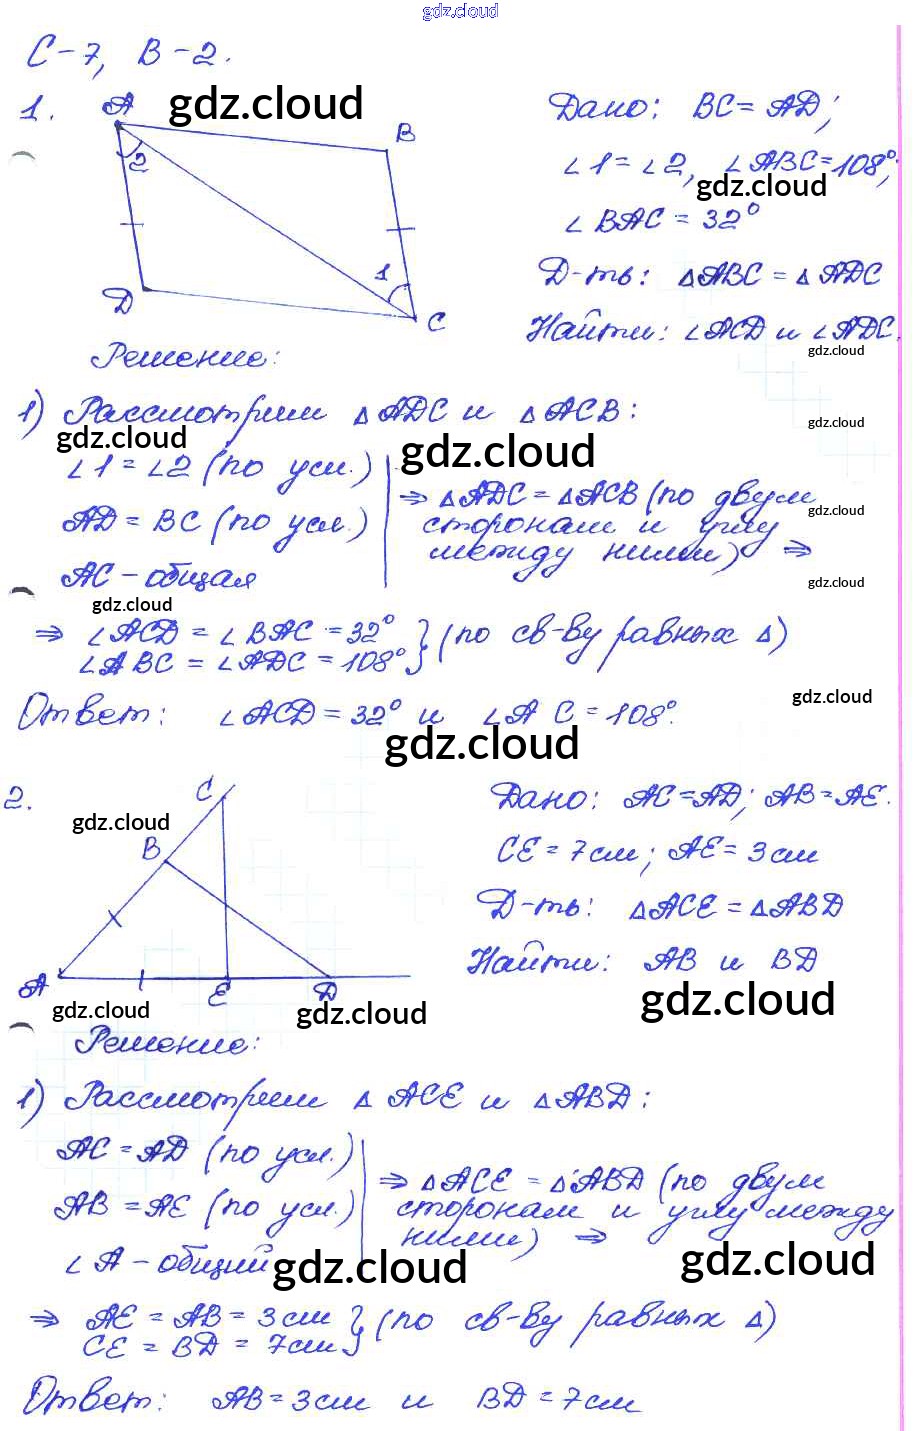 gdz.cloud
С-7, В-2.
1. A gdz.cloud Дано: BC = AD;
B
2 ∠1 = ∠2, ∠ABC = 108°,
gdz.cloud
∠BAC = 32°
1 Д-ть: ΔABC = ΔADC
D
C Найти: ∠ACD и ∠ADC.
gdz.cloud
Решение:
1) Рассмотрим ΔADC и ΔACB:
gdz.cloud
gdz.cloud gdz.cloud
∠1 = ∠2 (по усл.)
AD = BC (по усл.)
AC - общая
⇒ ΔADC = ΔACB (по двум
gdz.cloud
сторонам и углу
между ними) ⇒
gdz.cloud
gdz.cloud
⇒ ∠ACD = ∠BAC = 32°
∠ABC = ∠ADC = 108° } (по св-ву равных Δ)
gdz.cloud
Ответ: ∠ACD = 32° и ∠A C = 108°.
gdz.cloud
2. C Дано: AC = AD; AB = AE.
gdz.cloud
B CE = 7 см; AE = 3 см
Д-ть: ΔACE = ΔABD
Найти: AB и BD
A E D
gdz.cloud gdz.cloud gdz.cloud
Решение:
1) Рассмотрим Δ ACE и ΔABD:
AC = AD (по усл.)
AB = AE (по усл.)
∠A - общий
⇒ ΔACE = ΔABD (по двум
сторонам и углу между
ними) ⇒
gdz.cloud gdz.cloud
⇒ AE = AB = 3 см
CE = BD = 7 см } (по св-ву равных Δ)
Ответ: AB = 3 см и BD = 7 см